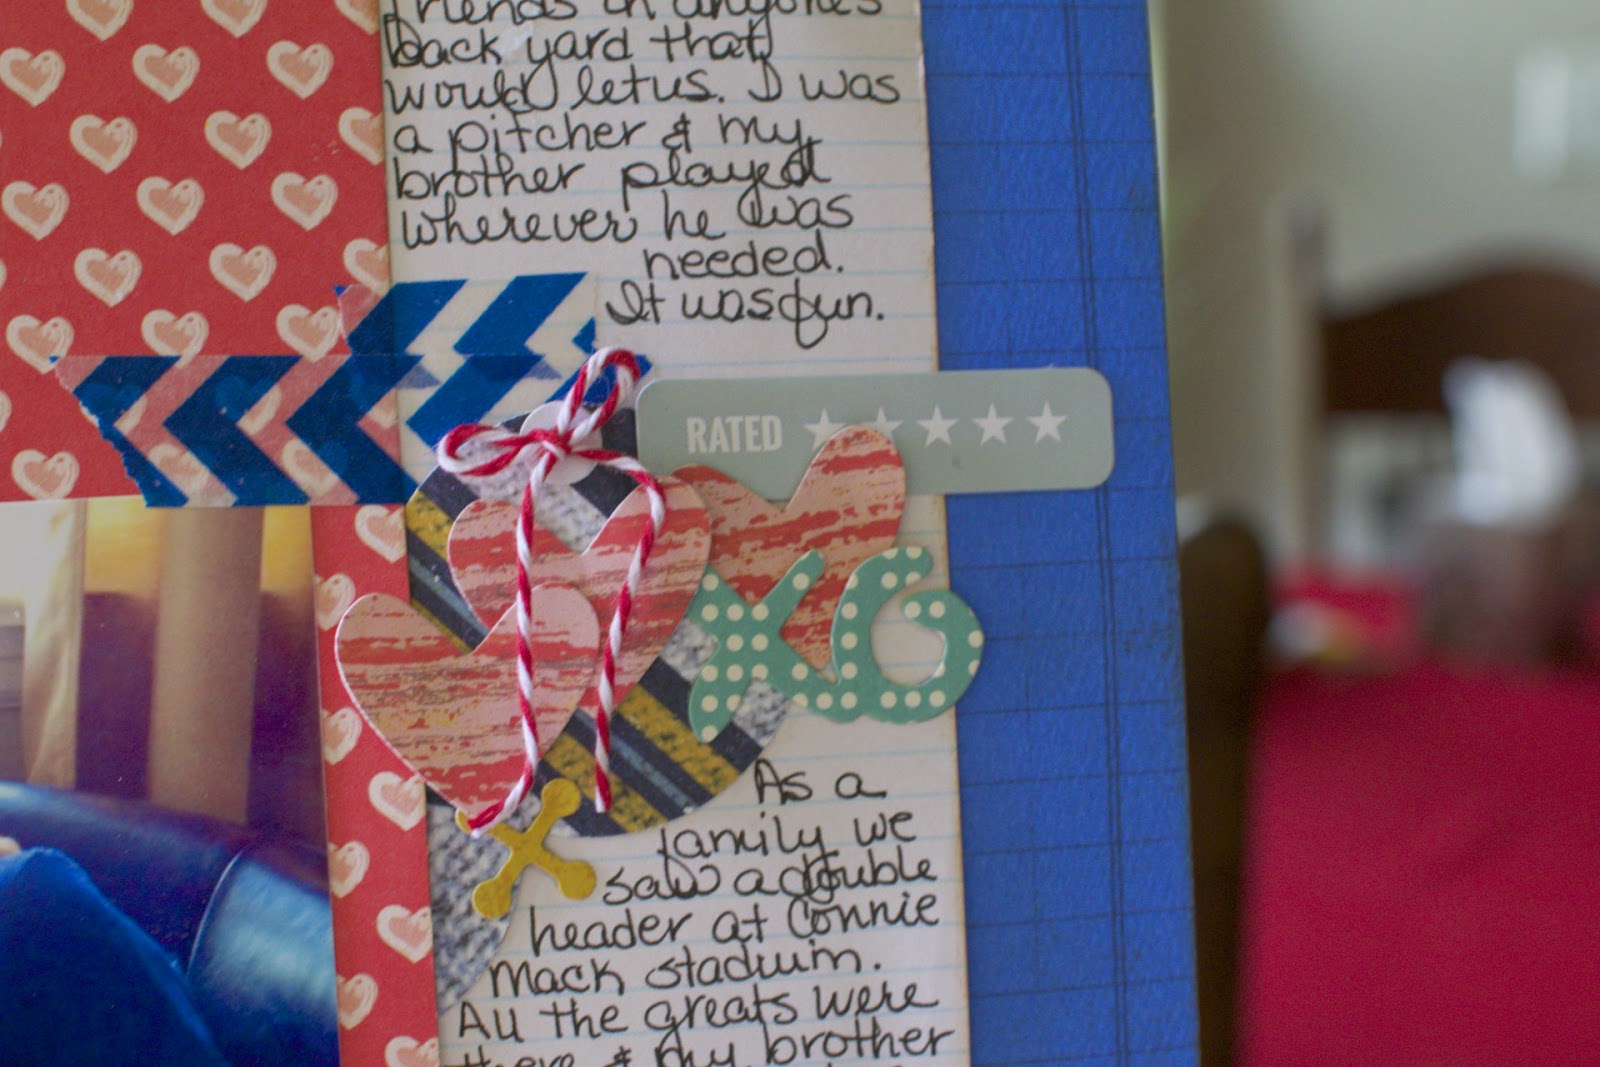 friends in anyone's
back yard that
would let us. I was
a pitcher & my
brother played
wherever he was
needed.
It was fun.
RATED ★★★★★
XO
As a
family we
saw a double
header at Connie
Mack stadium.
All the greats were
there & my brother